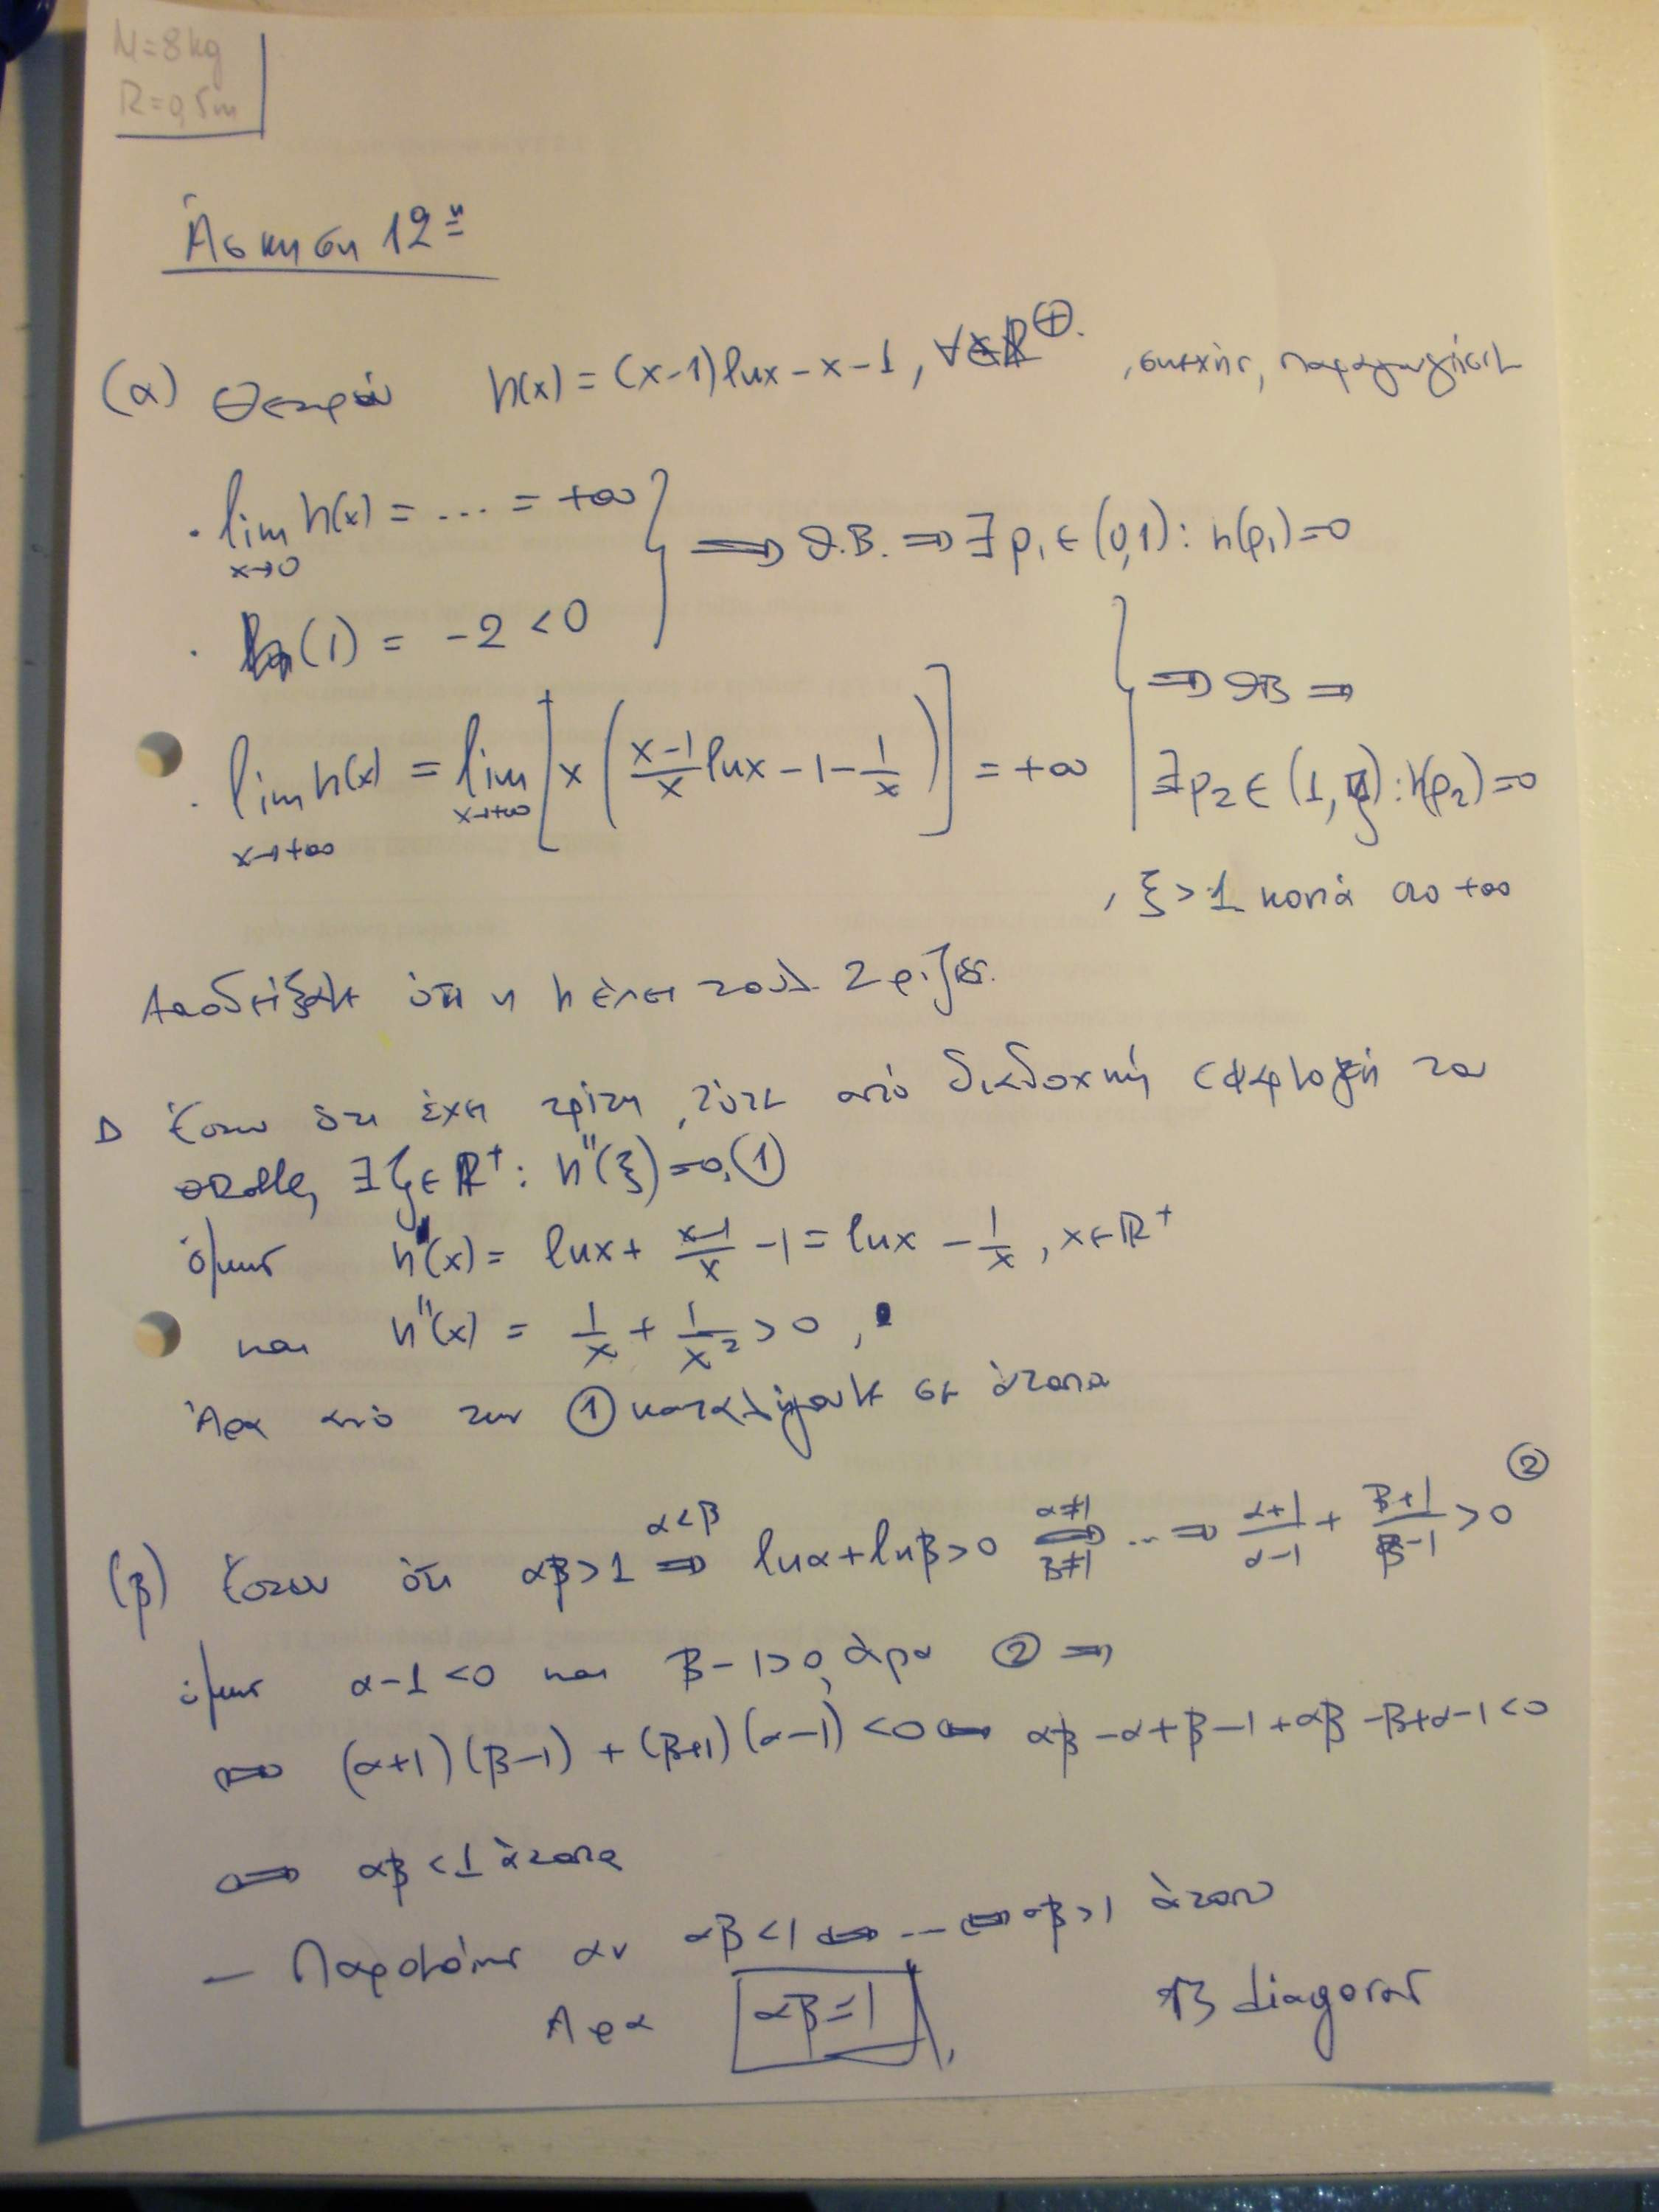 M=8kg
R=0,5m
Άσκηση 12η
(α) Θεωρώ h(x) = (x-1)lnx - x - 1, ∀x∈ℝ⊕. , συνεχής, παραγωγίσιμη
. lim h(x) = ... = +∞
x→0
⟹ Θ.Β. ⟹ ∃ ρ₁ ∈ (0,1): h(ρ₁)=0
. h(1) = -2 < 0
. lim h(x) = lim [x((x-1)/x lnx - 1 - 1/x)] = +∞
x→+∞ x→+∞
⟹ ΘΒ ⟹
∃ρ₂ ∈ (1,ξ): h(ρ₂)=0
, ξ > 1 κοντά στο +∞
Αποδείξαμε ότι η h έχει τουλ. 2 ρίζες.
Δ Έστω ότι έχει τρίτη, τότε από διαδοχική εφαρμογή του
Rolle, ∃ξ∈ℝ⁺: h''(ξ)=0, ①
όμως h'(x) = lnx + (x-1)/x - 1 = lnx - 1/x, x∈ℝ⁺
και h''(x) = 1/x + 1/x² > 0,
Άρα από την ① καταλήγουμε σε άτοπο
(β) Έστω ότι αβ>1 ⟹ (α<β) lnα+lnβ>0 ⟺ (α≠1, β≠1) ... ⟹ (α+1)/(α-1) + (β+1)/(β-1) > 0 ②
όμως α-1<0 και β-1>0, άρα ② ⟹
⟺ (α+1)(β-1) + (β+1)(α-1) <0 ⟺ αβ-α+β-1+αβ-β+α-1<0
⟺ αβ<1 άτοπο
- Παρομοίως αν αβ<1 ⟺ ... ⟺ αβ>1 άτοπο
Άρα αβ=1
ΤΒ diagoras